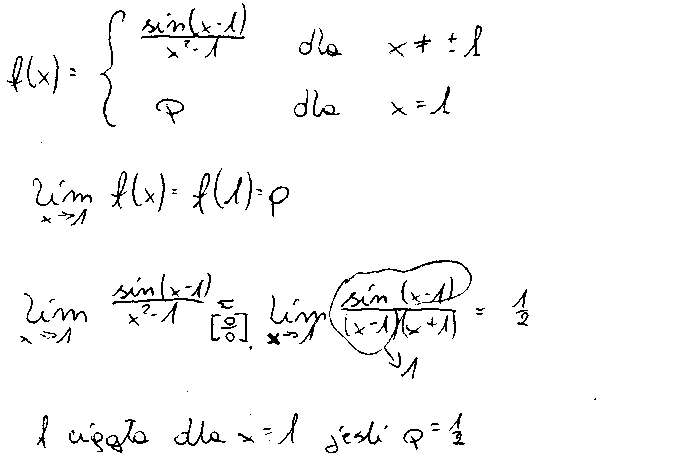 f(x) = { sin(x-1) / x²-1 dla x ≠ ±1
p dla x = 1
lim x→1 f(x) = f(1) = p
lim x→1 sin(x-1) / x²-1 = [0/0] lim x→1 sin(x-1) / (x-1)(x+1) = 1/2
→1
f ciągła dla x = 1 jeśli p = 1/2